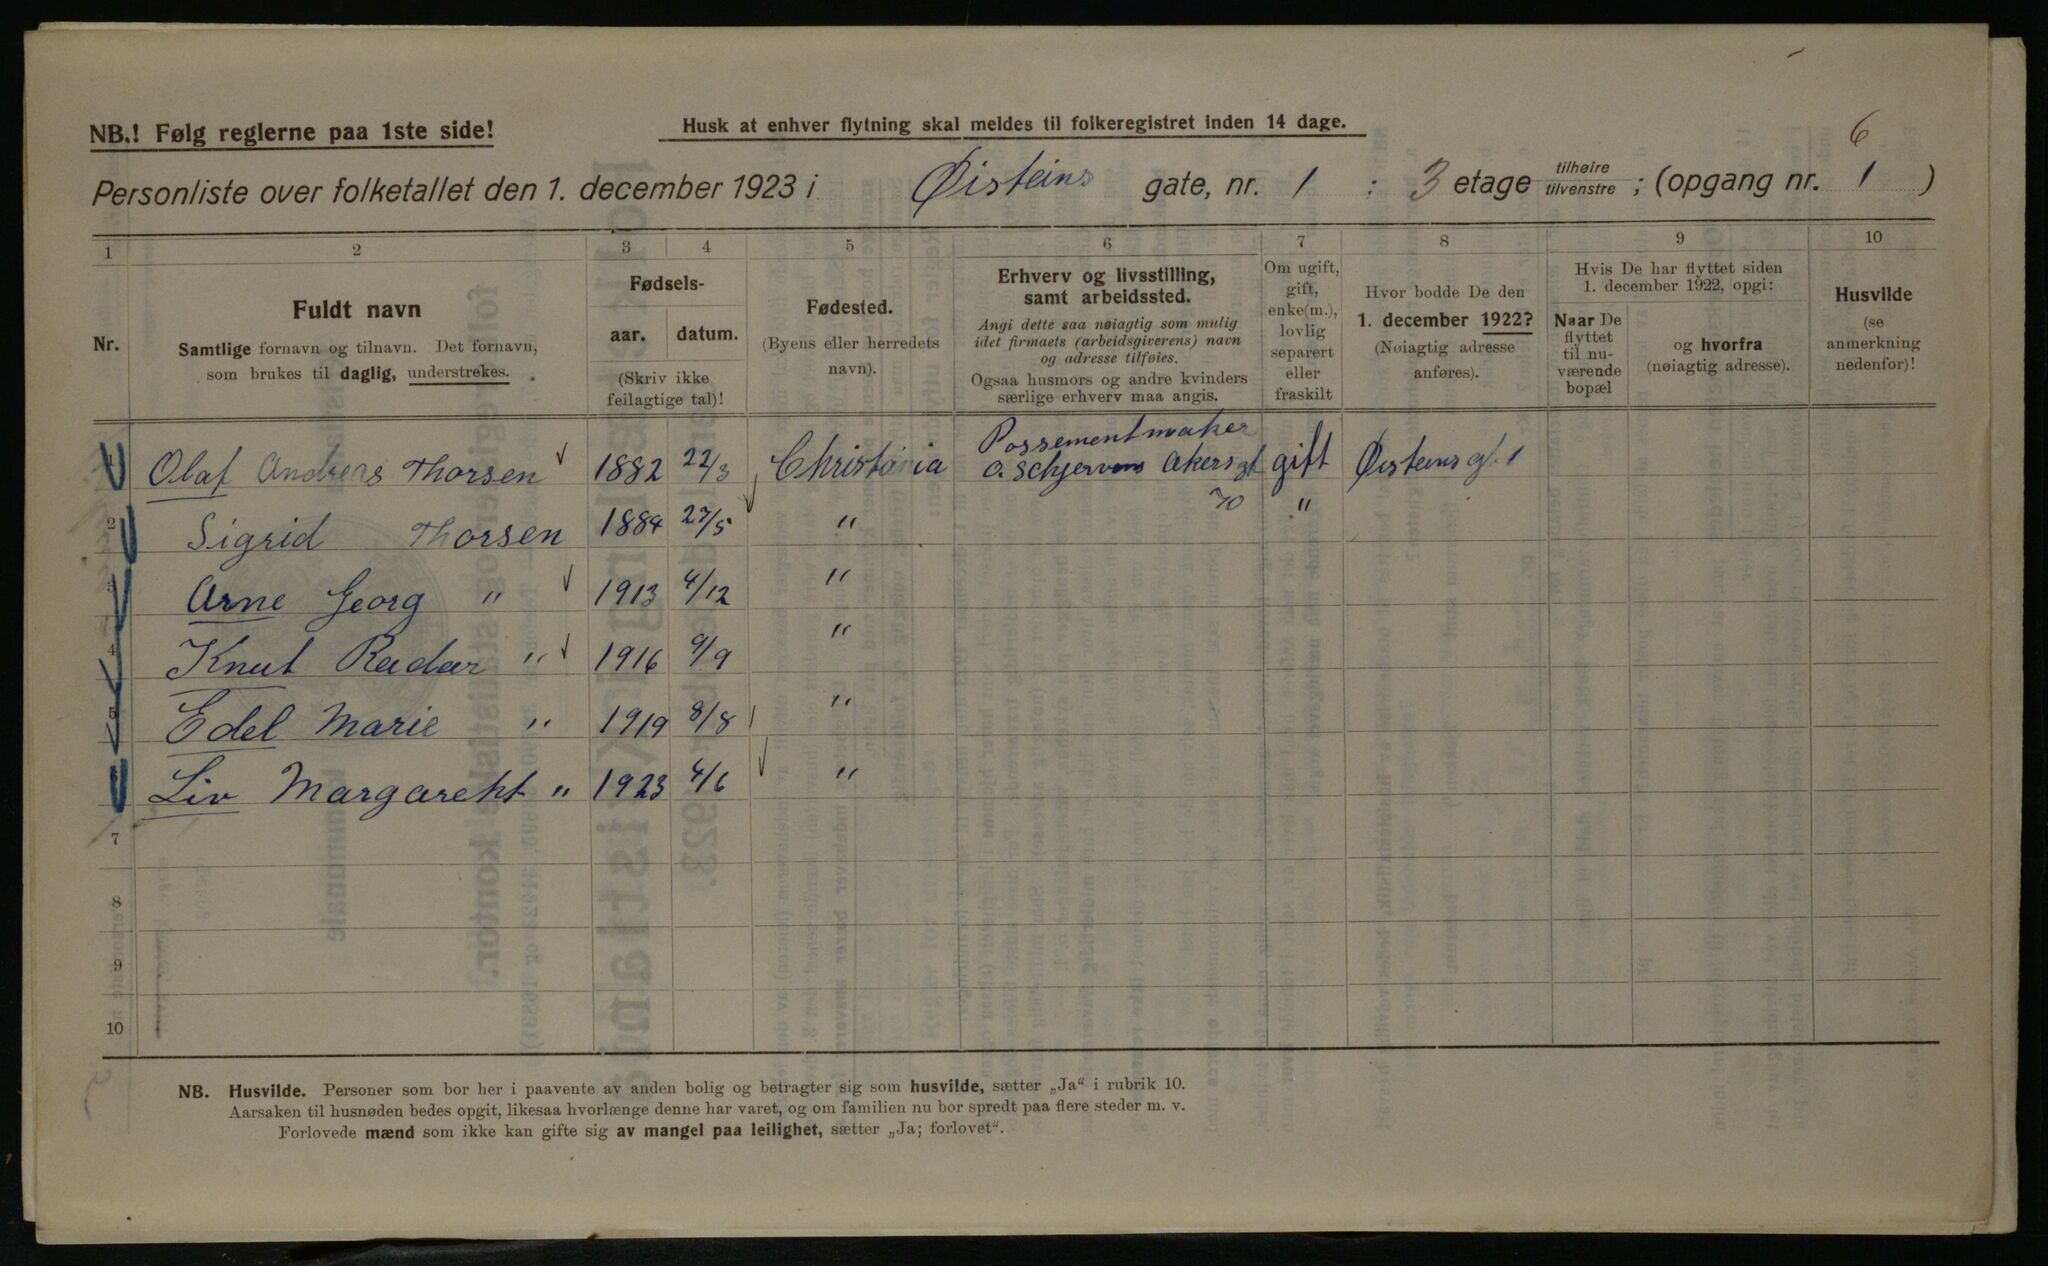 NB.! Følg reglerne paa 1ste side!
Husk at enhver flytning skal meldes til folkeregistret inden 14 dage.
6
Personliste over folketallet den 1. december 1923 i Øisteins gate, nr. 1 : 3 etage tilhøire tilvenstre ; (opgang nr. 1 )
1 2 3 4 5 6 7 8 9 10
Nr.
Fuldt navn
Samtlige fornavn og tilnavn. Det fornavn,
som brukes til daglig, understrekes.
Fødsels-
aar. datum.
(Skriv ikke
feilagtige tal)!
Fødested.
(Byens eller herredets
navn).
Erhverv og livsstilling,
samt arbeidssted.
Angi dette saa nøiagtig som mulig
idet firmaets (arbeidsgiverens) navn
og adresse tilføies.
Ogsaa husmors og andre kvinders
særlige erhverv maa angis.
Om ugift,
gift,
enke(m.),
lovlig
separert
eller
fraskilt
Hvor bodde De den
1. december 1922?
(Nøiagtig adresse
anføres).
Hvis De har flyttet siden
1. december 1922, opgi:
Naar De
flyttet
til nu-
værende
bopæl
og hvorfra
(nøiagtig adresse).
Husvilde
(se
anmerkning
nedenfor)!
Possementmaker
1 Olaf Andreas Thorsen 1882 22/3 Christania O. Schjervens Akersgt gift Øisteinsgt. 1
70
2 Sigrid Thorsen 1884 27/5 " "
3 Arne Georg " 1913 4/12 "
4 Knut Reidar " 1916 9/9 "
5 Edel Marie " 1919 8/8 "
6 Liv Margareht " 1923 4/6 "
7
8
9
10
NB. Husvilde. Personer som bor her i paavente av anden bolig og betragter sig som husvilde, sætter „Ja“ i rubrik 10.
Aarsaken til husnøden bedes opgit, likesaa hvorlænge denne har varet, og om familien nu bor spredt paa flere steder m. v.
Forlovede mænd som ikke kan gifte sig av mangel paa leilighet, sætter „Ja; forlovet“.